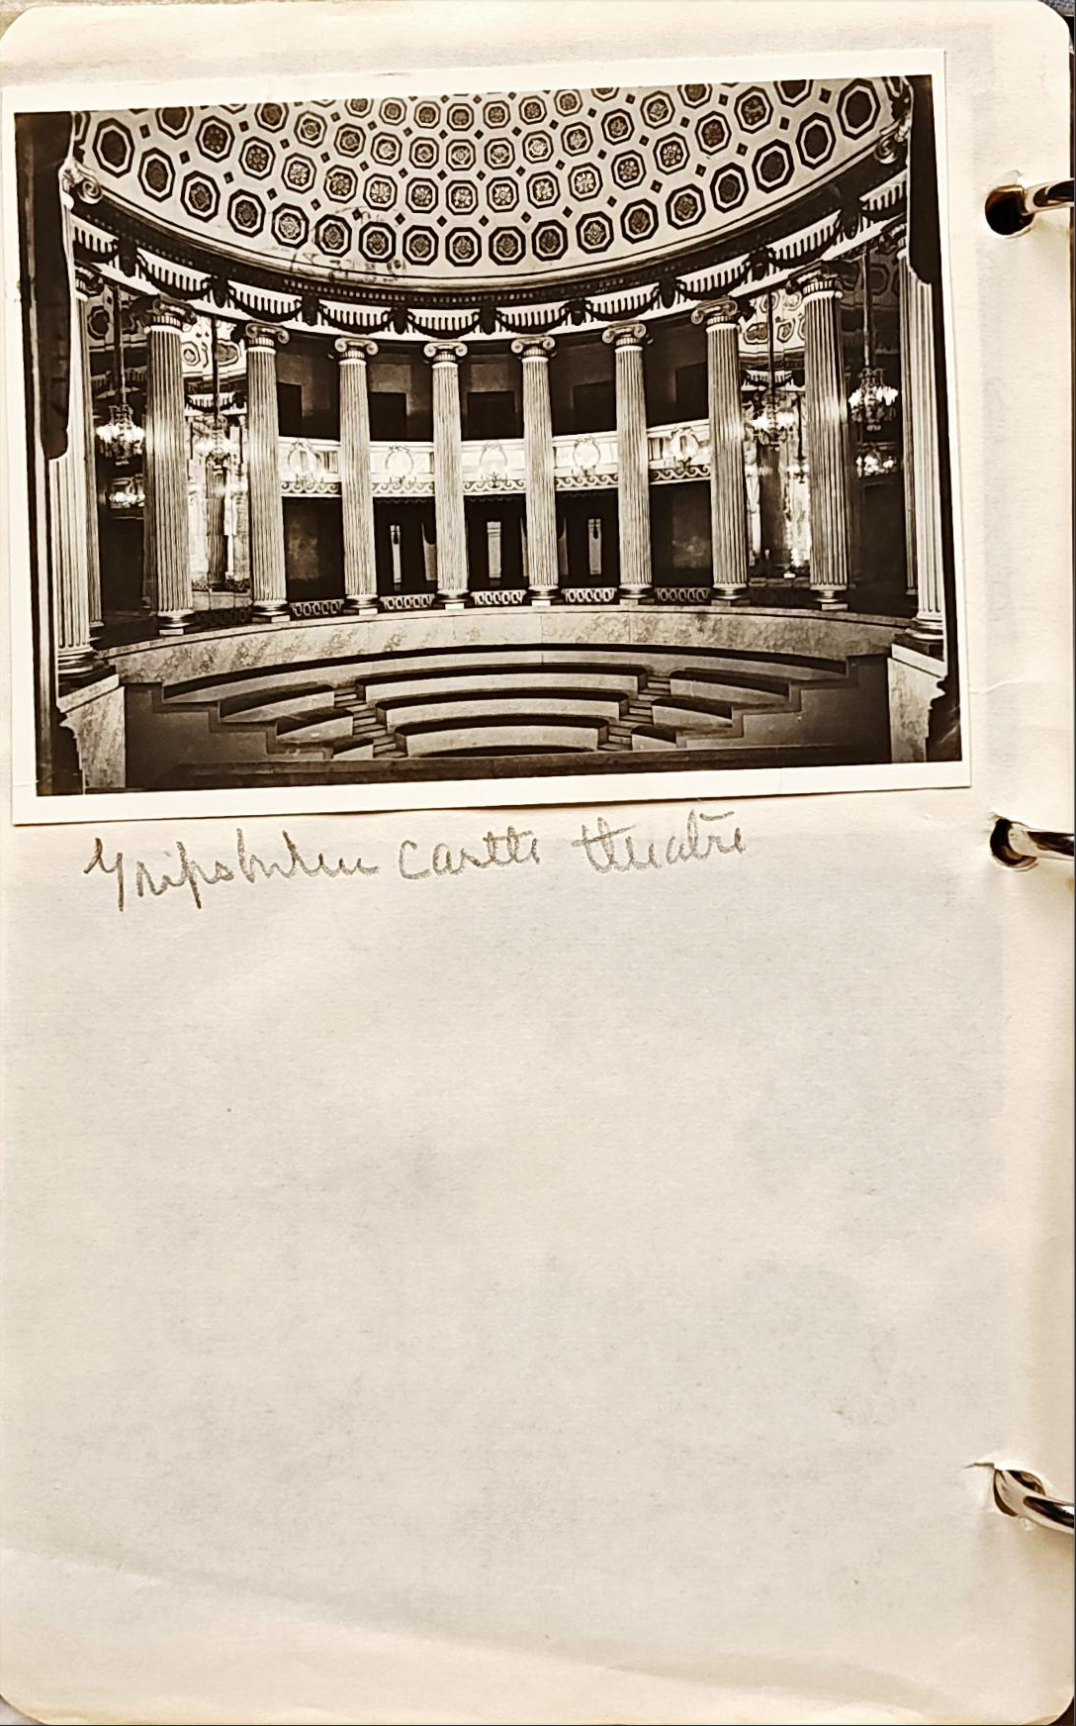 Gripsholm castle theatre